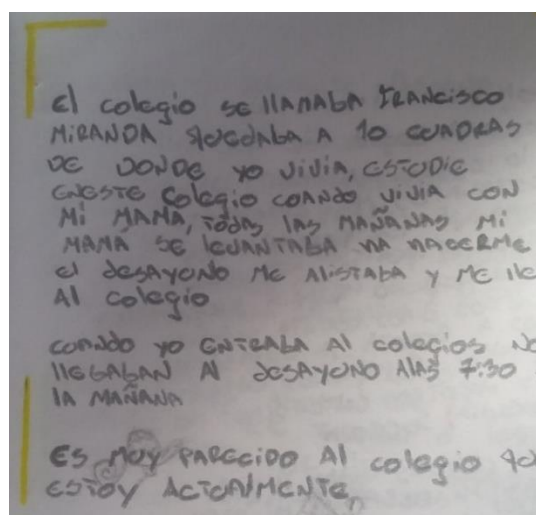 El colegio se llamaba Francisco
Miranda quedaba a 10 cuadras
de donde yo vivia, estudie
eneste colegio cuando vivia con
mi mama, todas las mañanas mi
mama se levantaba ha hacerme
el desayuno me alistaba y me lle
Al colegio
cuando yo entraba al colegios no
llegaban al desayuno alas 7:30
la mañana
Es muy parecido al colegio que
estoy actualmente,